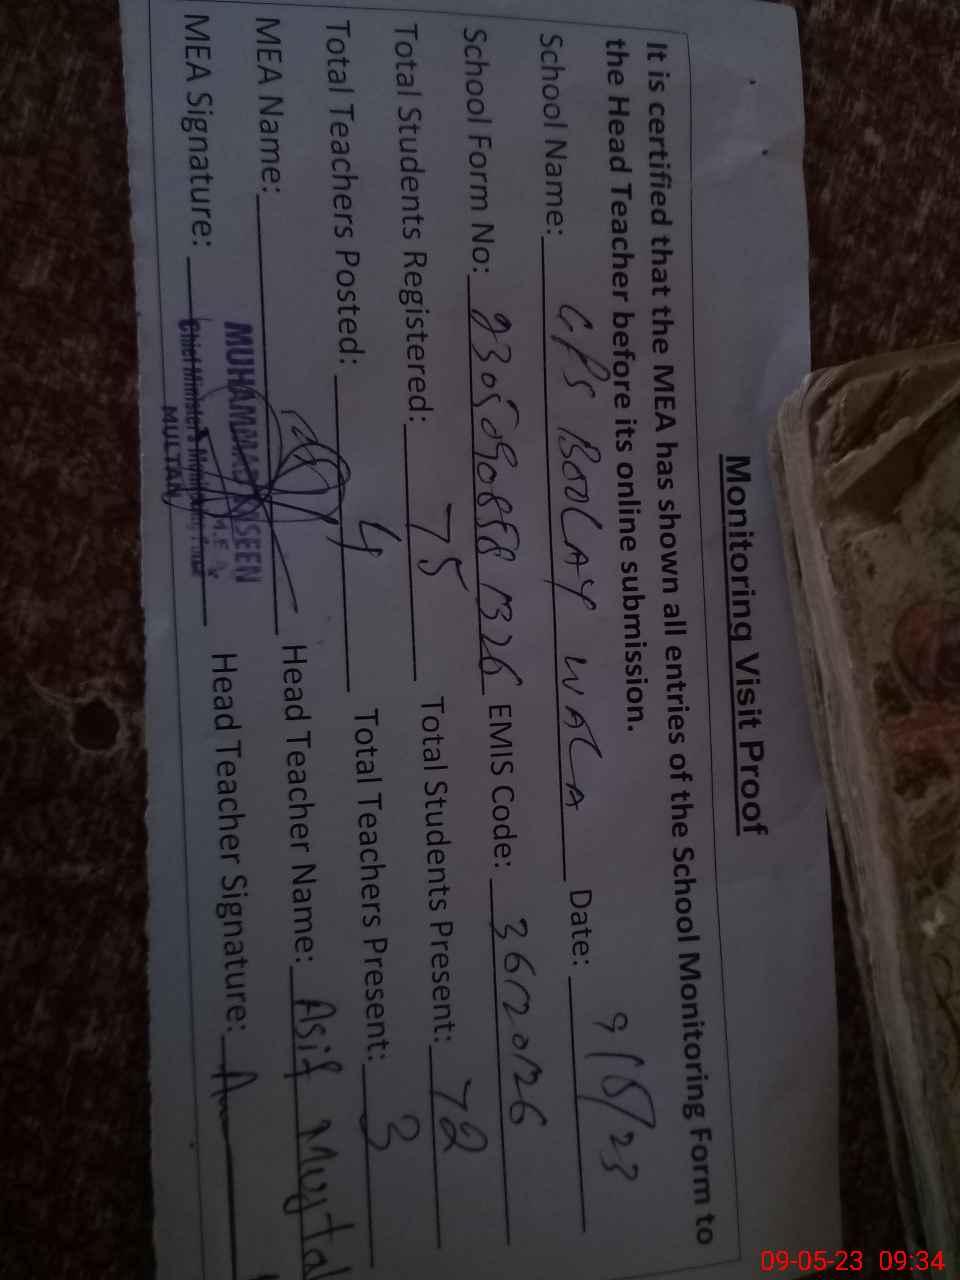 Monitoring Visit Proof
It is certified that the MEA has shown all entries of the School Monitoring Form to
the Head Teacher before its online submission.
School Name: GPS BOOLAY WALA Date: 9/5/23
School Form No: EMIS Code: 36120126
Total Students Registered: 75 Total Students Present: 72
Total Teachers Posted: 4 Total Teachers Present: 3
MEA Name: Head Teacher Name: Asif
MUHAMMAD
MEA Signature: Head Teacher Signature:
Chief Minister's
MULTAN
09-05-23 09:34